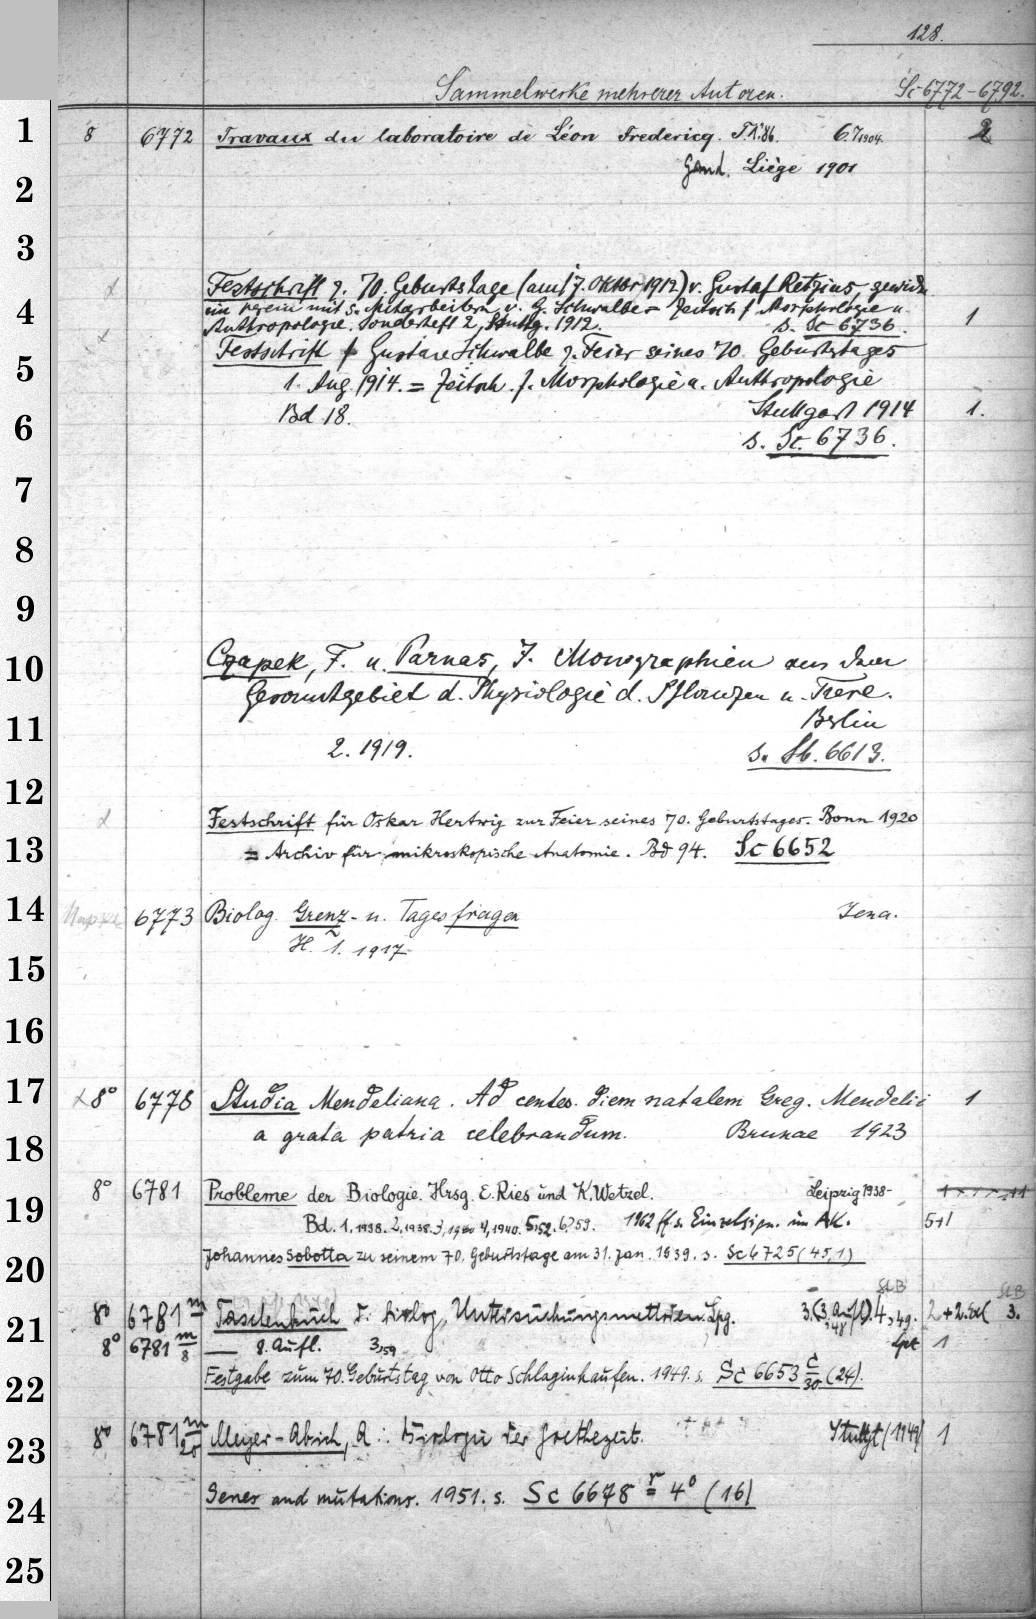 128.
Sammelwerke mehrerer Autoren. Sc 6772-6792.
1 8 6772 Travaux du laboratoire de Léon Fredericq. T.1.'86. 6.7/1904. 2
Gand. Liège 1901
2
3
Festschrift z. 70. Geburtstage (am 17. Oktbr 1912) v. Gustaf Retzius gewidm
4 ein verein mit s. Mitarbeitern v. G. Schwalbe = Zeitsch f Morphologie u. 1
Anthropologie, Sonderheft 2, Stuttg. 1912. s. Sc 6736.
Festschrift f Gustave Schwalbe z. Feier seines 70 Geburtstages
5 1. Aug. 1914. = Zeitsch. f. Morphologie u. Anthropologie
6 Bd 18. Stuttgart 1914 1.
s. Sc. 6736.
7
8
9
10 Czapek, F. u. Parnas, J. Monographien aus dem
Gesamtgebiet d. Physiologie d. Pflanzen u. Tiere.
11 Berlin
2. 1919. s. Sb. 6613.
12
Festschrift für Oskar Hertwig zur Feier seines 70. Geburtstages. Bonn 1920
13 = Archiv für mikroskopische Anatomie. Bd 94. Sc 6652
14 6773 Biolog. Grenz- u. Tagesfragen Jena.
H. 1. 1917-
15
16
17 8° 6778 Studia Mendeliana. Ad centes. diem natalem Greg. Mendelii 1
18 a grata patria celebrandum. Brunae 1923
19 8° 6781 Probleme der Biologie. Hrsg. E. Ries und K. Wetzel. Leipzig 1938-
Bd. 1, 1938. 2, 1938. 3, 1940 4, 1940. 5, 52. 6, 59. 1962 ff s. Einzelsign. im AK. 5+1
20 Johannes Sobotta zu seinem 70. Geburtstage am 31. Jan. 1939. s. Sc 6725 (45,1)
StB StB
21 8° 6781 m Taschenbuch d. biolog. Untersuchungsmethoden. Lpg. 3. (3. Aufl.), 48 4, 49. 2+2.Ex( 3.
8° 6781 m/8 — 8. Aufl. 3, 59 Lpz 1
22 Festgabe zum 70. Geburtstag von Otto Schlaginhaufen. 1949. s. Sc 6653 c/30 (24).
23 8° 6781 m/20 Meyer-Abich, A.: Biologie der Goethezeit. Stuttgt (1949) 1
24 Genes and mutations. 1951. s. Sc 6678 r = 4° (16)
25